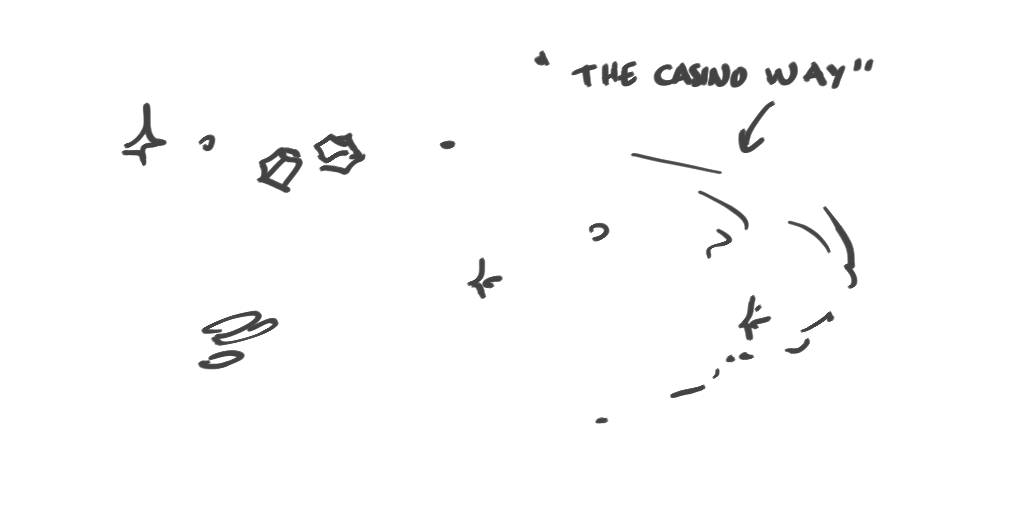 "THE CASINO WAY"